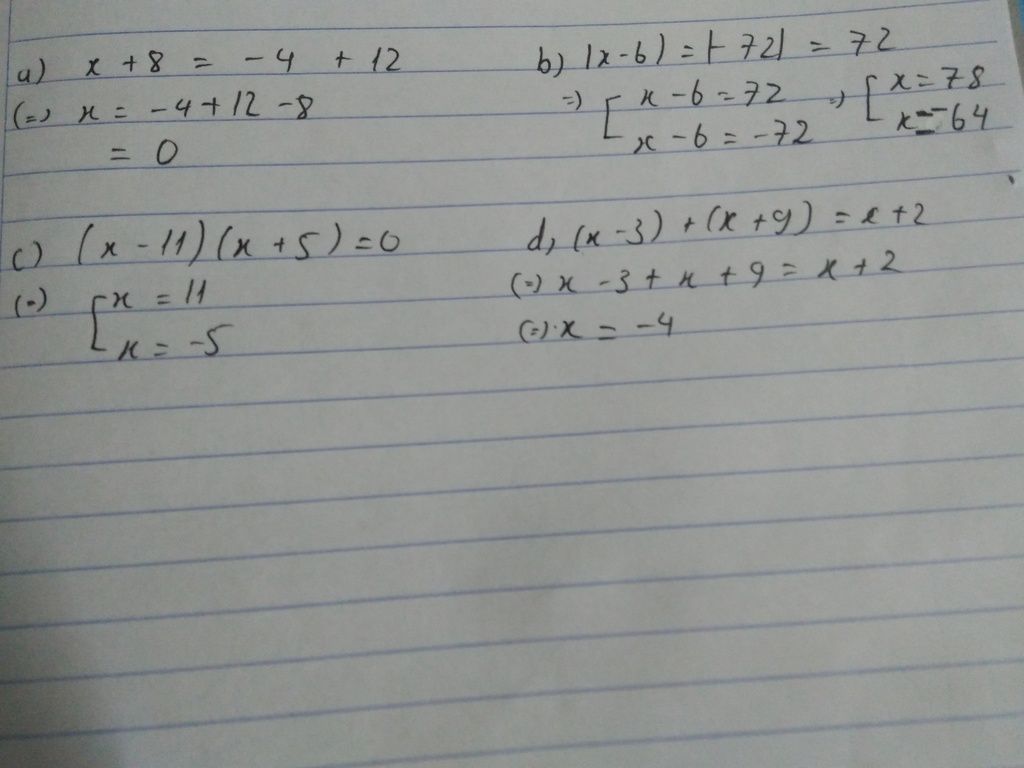 a) x + 8 = -4 + 12
(=) x = -4 + 12 - 8
= 0
b) |x-6) = |-72| = 72
=) [ x - 6 = 72 =) [ x = 78
x - 6 = -72 x = -64
c) (x - 11) (x + 5) = 0
(=) [ x = 11
x = -5
d, (x - 3) + (x + 9) = x + 2
(=) x - 3 + x + 9 = x + 2
(=) x = -4